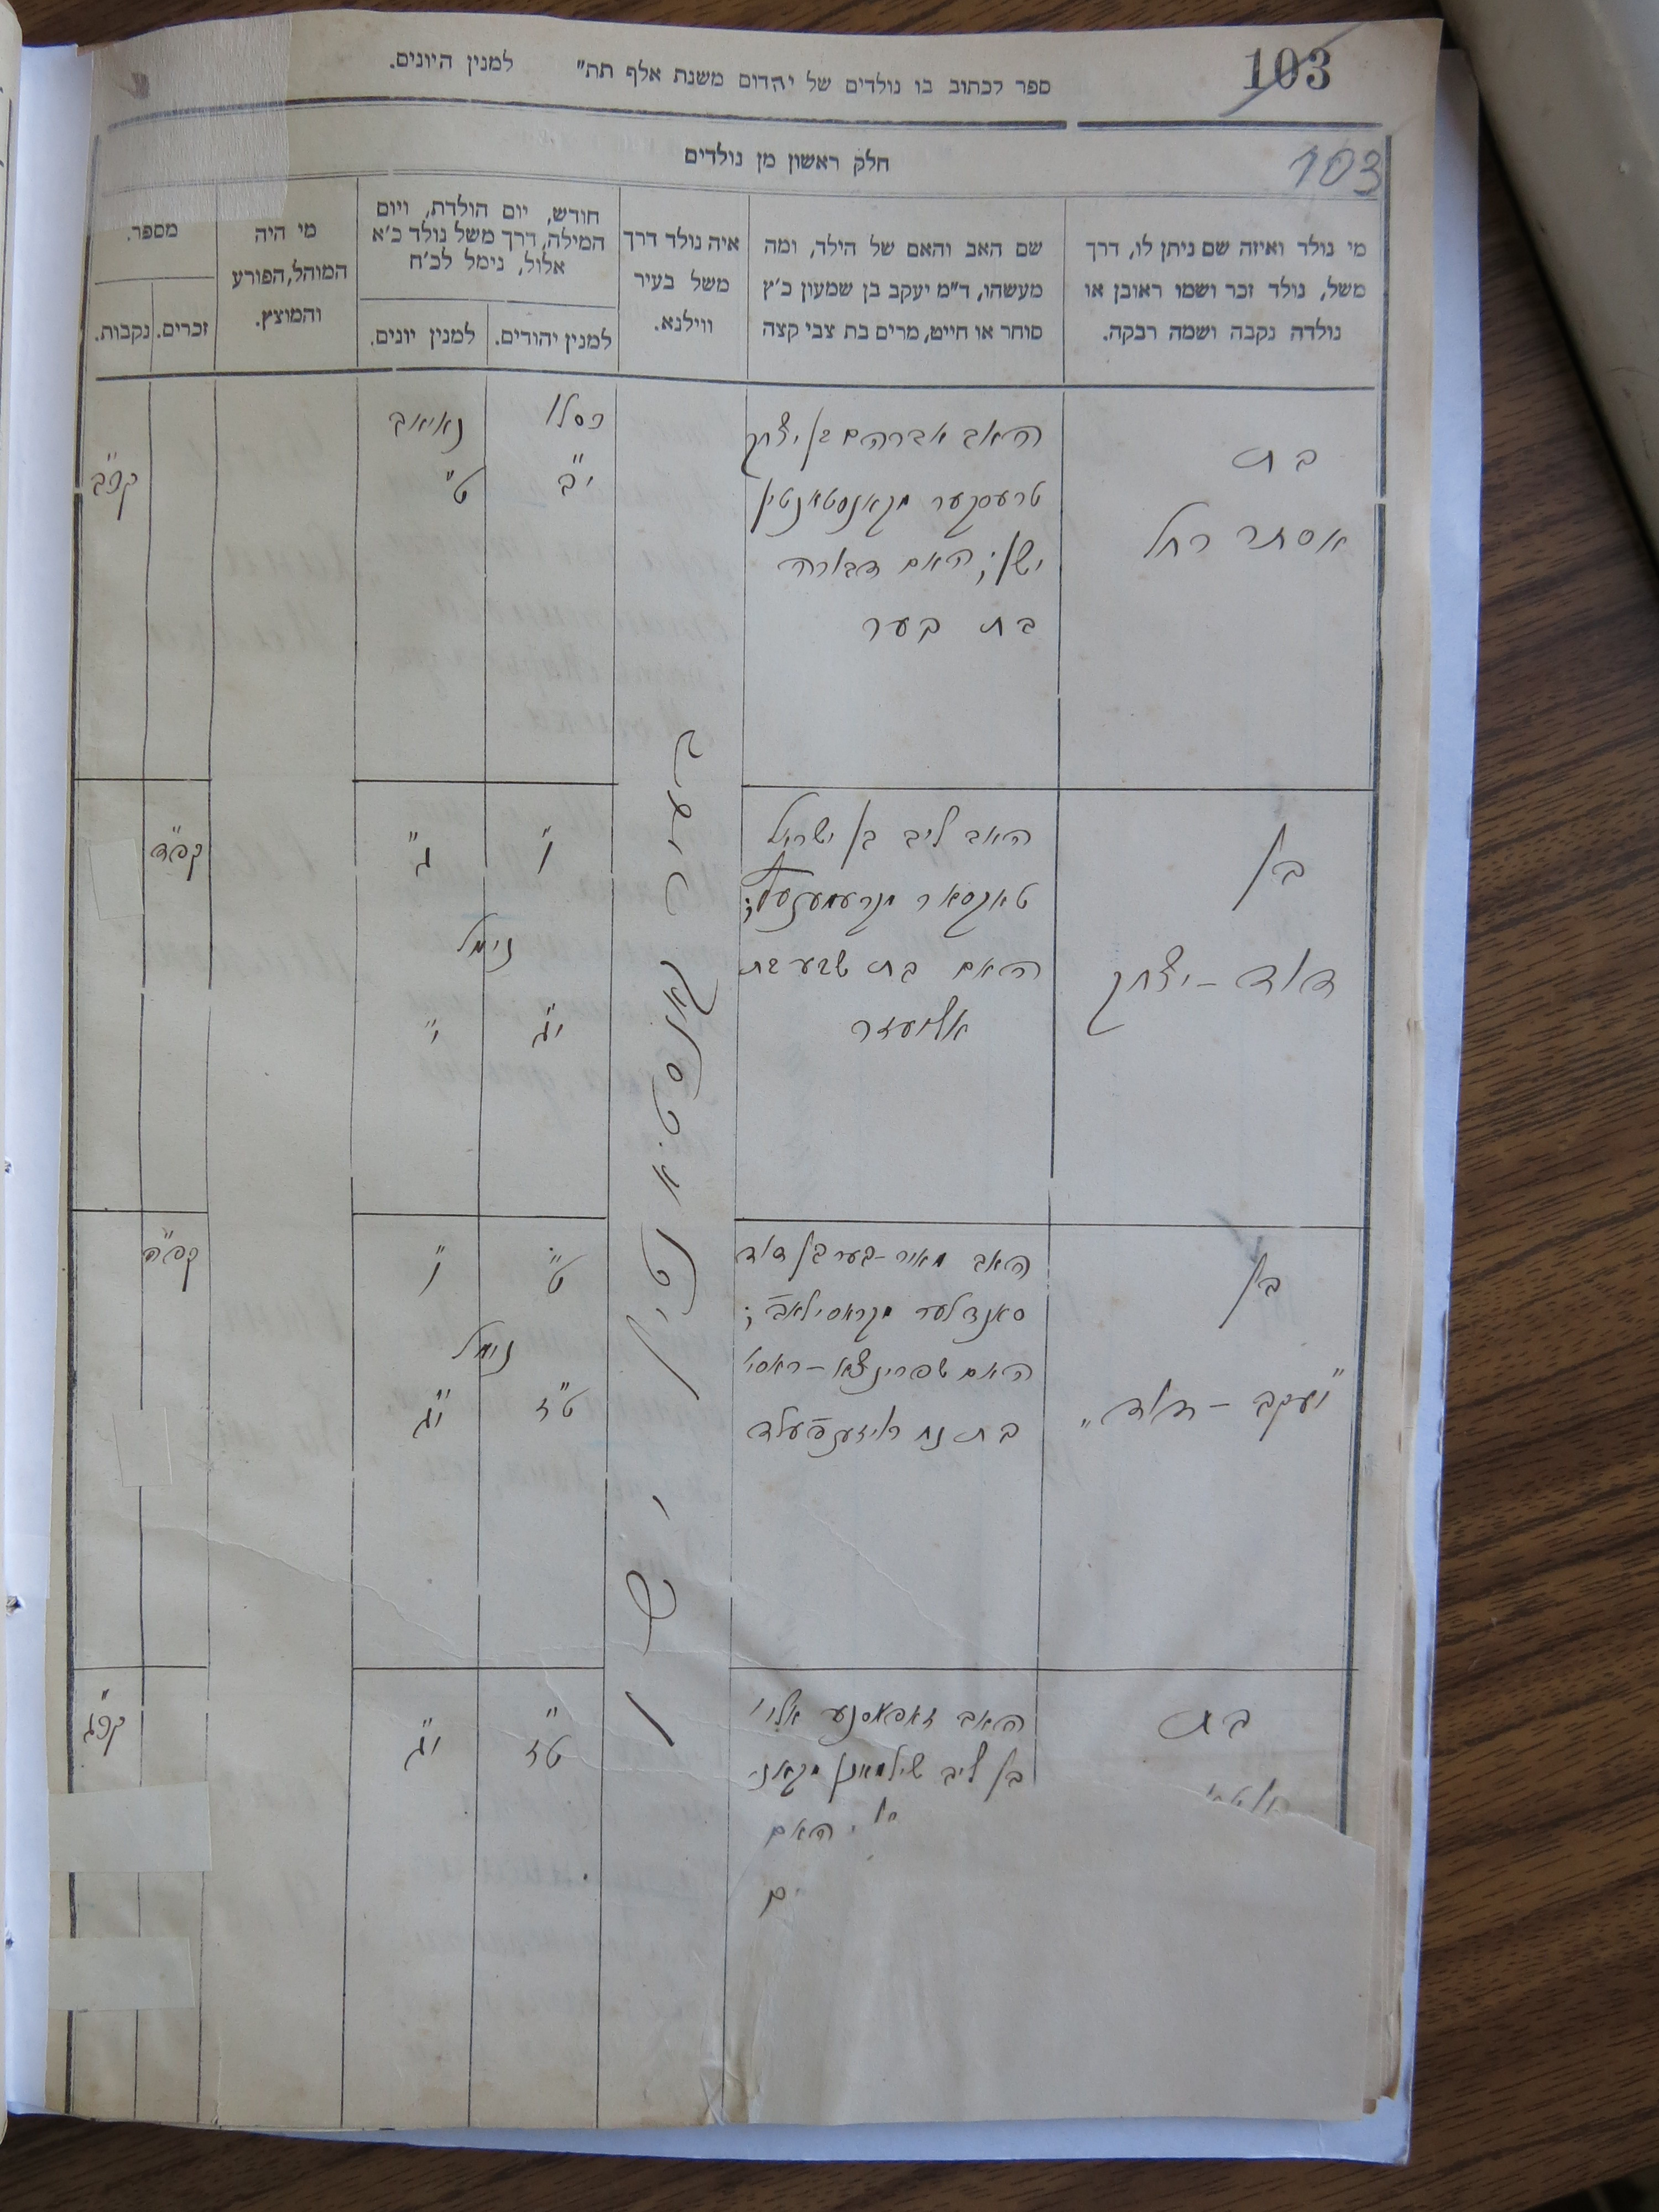 103
ספר לכתוב בו נולדים של יהדום משנת אלף תת" למנין היונים.
103
חלק ראשון מן נולדים
מי נולד ואיזה שם ניתן לו, דרך
משל, נולד זכר ושמו ראובן או
נולדה נקבה ושמה רבקה.
שם האב והאם של הילד, ומה
מעשהו, ד"מ יעקב בן שמעון כ'ץ
סוחר או חייט, מרים בת צבי קצה
איה נולד דרך
משל בעיר
ווילנא.
חודש, יום הולדת, ויום
המילה, דרך משל נולד כ'א
אלול, נימל לכ'ח
למנין יהודים.
למנין יונים.
מי היה
המוהל, הפורע
והמוצץ.
מספר.
זכרים.
נקבות.
בת
אסתר רחל
האב אברהם בן יצחק
טרעסקער מקאנסטאנטין
ישן; האם דבורה
בת בער
כסלו
י"ב
נאיאב
ט"
קפ"ב
בעיר קאנסטאנטין ישן
בן
דוד - יצחק
האב ליב בן ישראל
האם בת שבע בת
אליעזר
ו"
ג"
נימל
י"ג
י"
קפ"ד
בן
"יעקב - דוד"
האב מאיר-בער בן דוד
סאנדלער מקראסילאב;
האם שפרינצא-ראסי
בת נח ראיזענפעלד
ט"
ו"
נימל
ט"ז
י"ג
קפ"ה
בת
האב אלי'
בן ליב שילמאנן מקאנ
האם
ט"ז
י"ג
קפ"ג